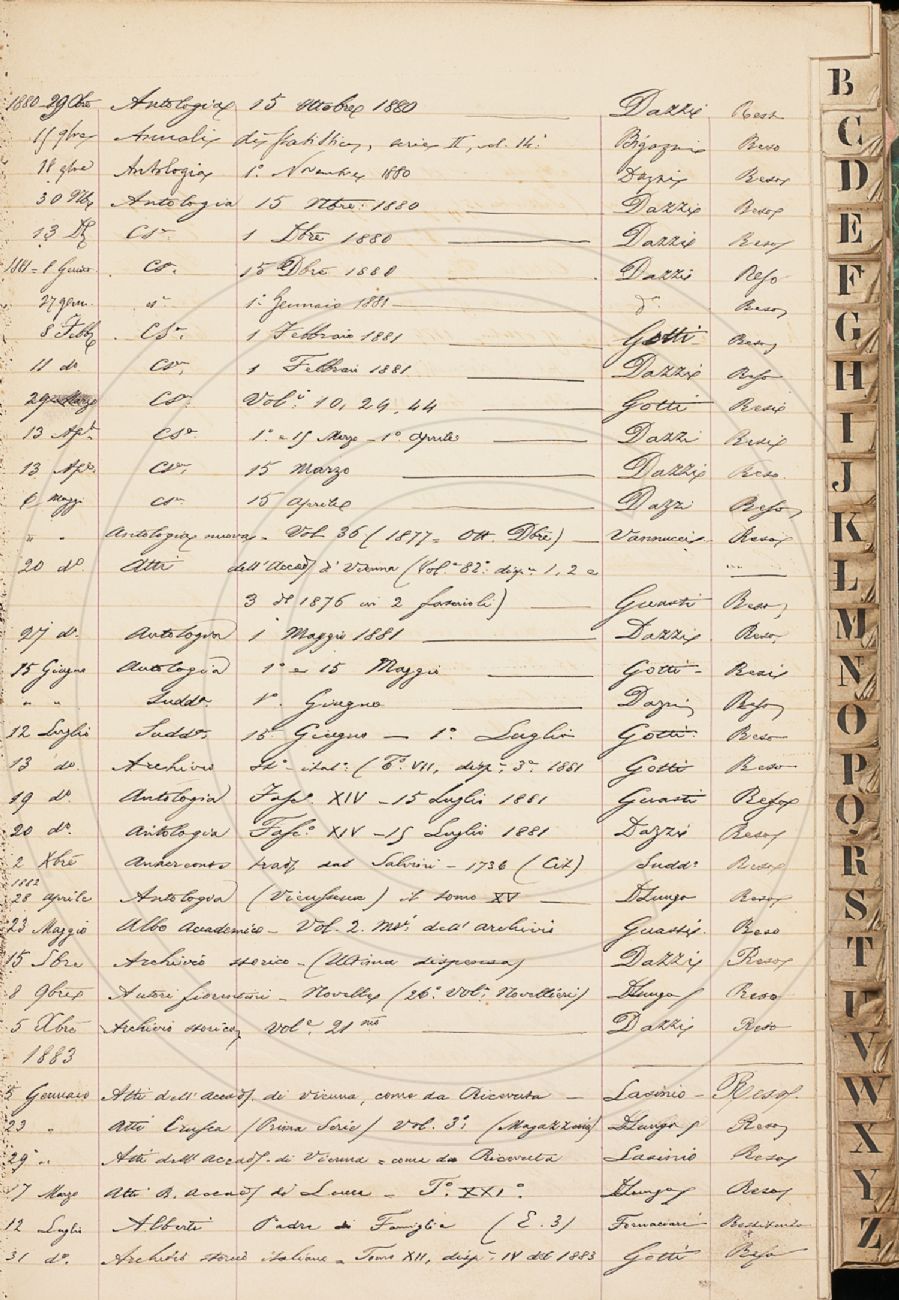 1880 - 29 8bre Antologia 15 Ottobre 1880 Dazzi Reso
15 9bre Annali di Statistica, serie II, vol. 14: Bigazzi Reso
18 9bre Antologia 1° Novembre 1880 Dazzi Reso
30 9bre Antologia 15 9bre: 1880 Dazzi Reso
13 Csa 1 Dbre 1880 Dazzi Reso
1881 - 8 Csa. 15 Dbre 1880 Dazzi Reso
27 genn. 1° Gennaio 1881 do Reso
8 Febb Csa 1 Febbraio 1881 Gotti Reso
11 do Csa. 1 Febbrai 1881 Dazzi Reso
29 Marzo Csa. Vol.i 10, 24, 44 Gotti Resi
13 Apl. Csa 1° e 15 Marzo - 1° Aprile Dazzi Resi
13 Apl. Csa. 15 Marzo Dazzi Reso
6 Maggi Csa 15 Aprile Dazzi Reso
" " Antologia nuova - Vol 36 (1877 = Ott. Dbre) Vannucci Reso
20 do Atti dell'Accad. d'Vienna (Vol. 82° disp. 1, 2 e
3 del 1876 in 2 fascicoli) Guasti Reso
27 do. Antologia 1° Maggio 1881 Dazzi Reso
15 Giugno Antologia 1° e 15 Maggio Gotti Resi
" " Sudda 1°. Giugno Dazzi Reso
12 Luglio Sudda. 15 Giugno - 1° Luglio Gotti Reso
13 do. Archivio Sto. ital: (To. VII, disp. 3a 1881 Gotti Reso
19 do Antologia Fasc. XIV - 15 Luglio 1881 Guasti Reso
20 do. Antologia Fasc. XIV - 15 Luglio 1881 Dazzi Reso
2 Xbre Anacreonte trad. dal Salvini - 1736 (Cit) Sudd. Reso
1882
28 Aprile Antologia (Vieusseux) il tomo XV DLungo Reso
23 Maggio Albo Accademico - Vol. 2. Ms. dell'archivio Guasti Reso
15 8bre Archivio storico - (Ultima dispensa) Dazzi Reso
8 9bre Autori fiorentini - Novelle (26° Vol. Novellieri) DLungo Reso
5 Xbre Archivio storico Vol. 21mo Dazzi Reso
1883
5 Gennaio Atti dell'Accad. di Vienna, come da Ricevuta - Lasinio - Reso
23 " Atti Crusca (Prima Serie) Vol. 3° (Magazzino) DLungo Reso
29 " Atti dell'Accad. di Vienna = come da Ricevuta Lasinio Reso
17 Marzo Atti R. Accad. di Lucca - To. XXI° DLungo Reso
12 Luglio Alberti Padre di Famiglia (E. 3) Fornaciari
31 do. Archivio storico italiano - Tomo XII, disp. IV del 1883 Gotti Reso
B
C
D
E
F
G
H
I
J
K
L
M
N
O
P
Q
R
S
T
U
V
W
X
Y
Z